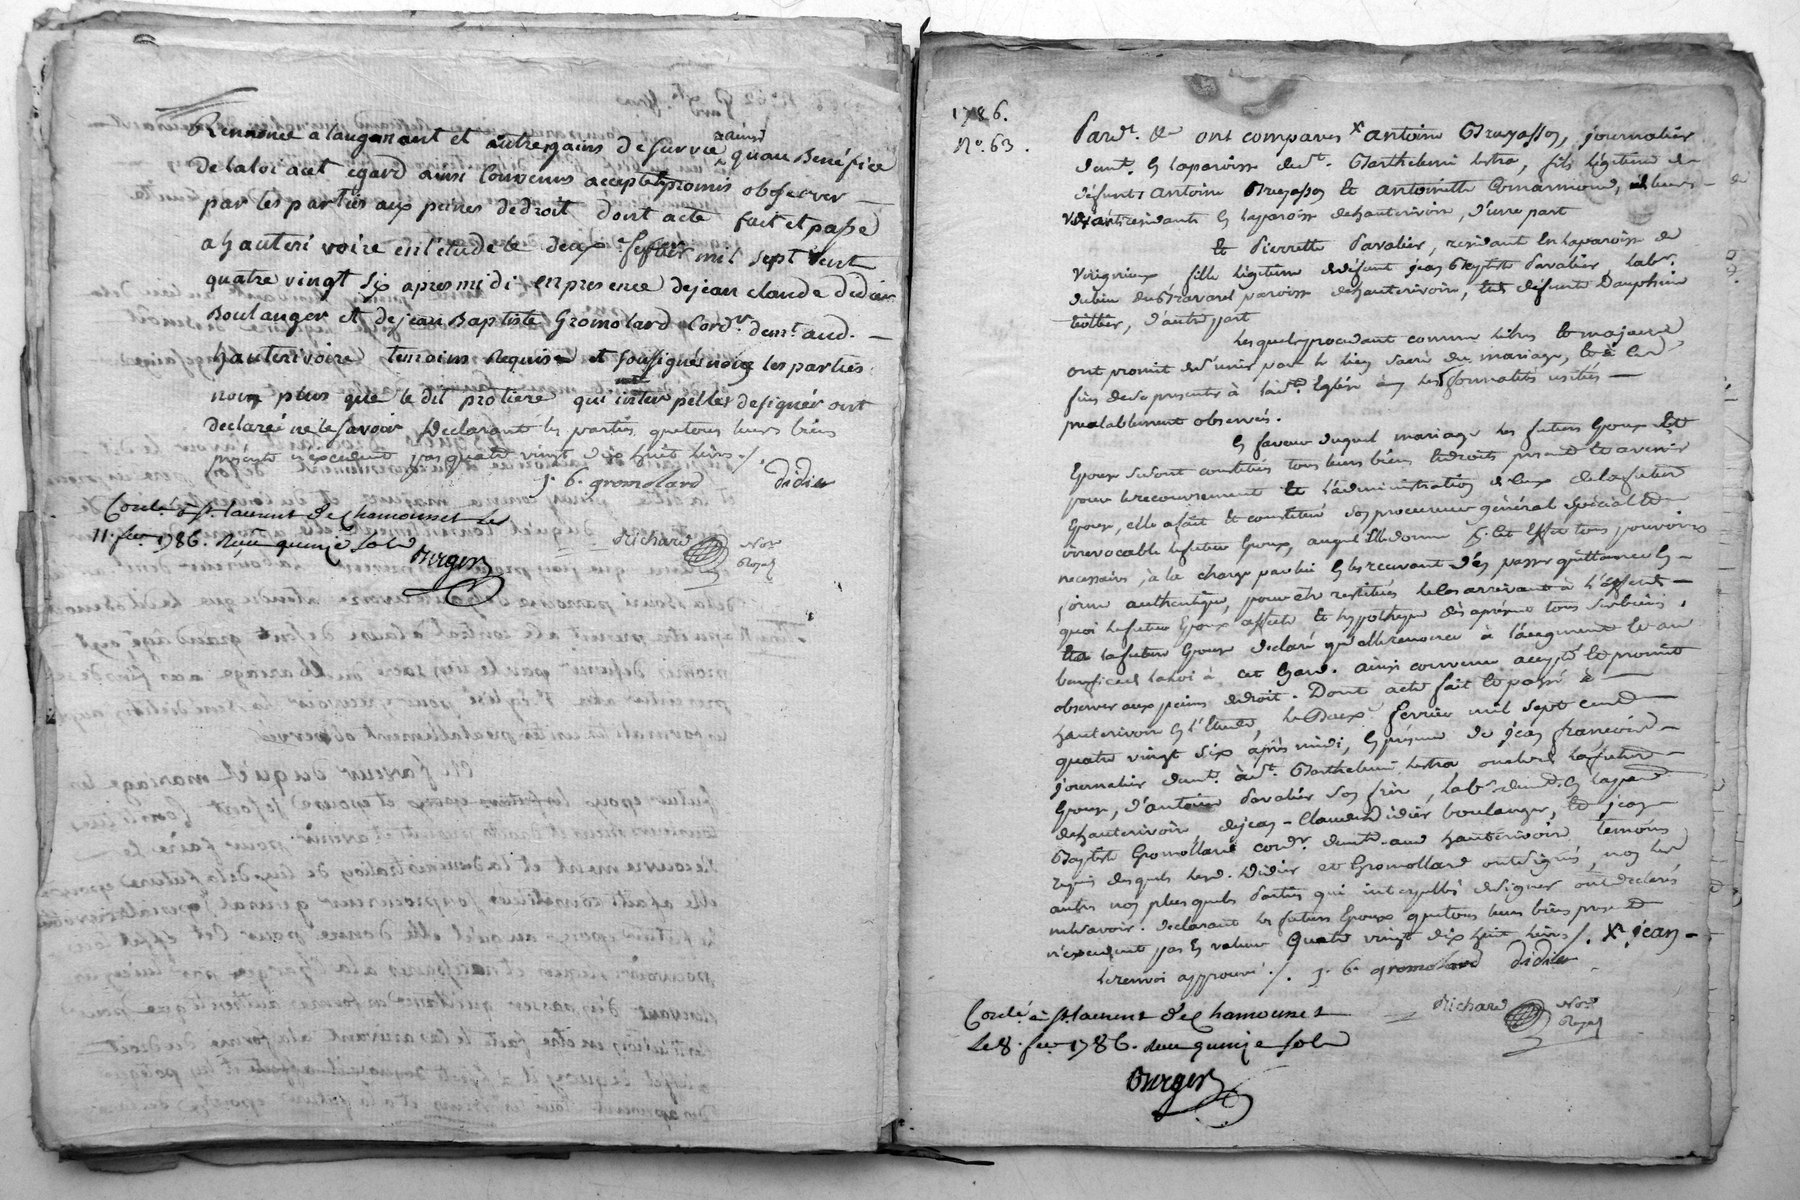 Rennonce a laugmant et autre gains de survie ainsi quau Benéfice
De la loi a cet egard ainsi Convenus accepté promis observer
par les parties aux peines de droit dont acte fait et passé
a hauterivoire en létude le deux fevrier mil sept cent
quatre vingt six apres midi en presence de jean claude didier
Boulanger et de jean Baptiste Gromolard Cordr. demt. aud.
hauterivoire temoins requis et soussigné non les parties
non plus que le dit protiere qui interpellés de signer ont
declaréé ne le savoir Declarant les parties que tous leurs biens
présents n'excedent pas quatre vingt dix huit livres ./.
j. b. gromolard didier
Conlé à St. laurent de Chamousset le
11. fev. 1786. Reçu quinze sols
Burger
Richard Nore.
Royal
1786.
No. 63.
Pardt. &a ont comparus x antoine Bruyasson, journalier
demt. en la paroisse de St. Barthelemi lestra, fils légitime de
défunts antoine Bruyasson et antoinette
vivant résidants en la paroisse dehauterivoire, d'une part
Et Pierrette Pavalier, residant en la paroisse de
Virignieux fille légitime de défunt jean Baptiste Pavalier labr.
du lieu de paroisse dehauterivoire, et de défunte Dauphine
d'autre part
Lesquels procedant comme libres et majeurs,
ont promit de s'unir par le lien sacré du mariage, et à ces
fins de se presenter à la Ste. Eglise les formalités usitées
prealablement observés.
En faveur duquel mariage les futurs Epoux et
Epouse se sont constitués tous leurs biens et droits present et avenir
pour le recouvrement et l'administration de ceux de la future
Epouse, elle a fait et constitué son procureur général spécial et
irrevocable le futur Epoux, auquel elle donne p. cet Effet tous pouvoirs
necessaires, à la charge par lui en les recevant d'en passer quittances en
forme authentique, pour etre restitués le cas arrivant à l'effet de
quoi le futur Epoux affecte et hypotheque dès apresent tous ses biens.
la future Epouse declare qu'elle renonce à l'augment et au
benefice de la loi à cet Egard. ainsi convenu accepté et promit
observer aux peines de droit. Dont acte fait et passé à
hauterivoire en l'Etude, le Deux fevrier mil sept cent
quatre vingt six après midi, en présence de jean francois
journalier demt. à St. Barthelemi lestra oncle de la future
Epouse, d'antoine Pavalier son frere, labr. demt. en la parsse
dehauterivoire, de jean-Claude Didier boulanger, et jean
Baptiste Gromollard cordr. demt. aud. hauterivoire, temoins
requis desquels lesd. Didier et Gromollard ont signés, non les
autres non plus que les Parties qui interpellés de signer ont declarés
ne le savoir. declarant les futurs Epoux que tous leurs biens present
n'excedent pas en valeur Quatre vingt dix huit livres ./. x jean-
le renvoi approuvé ./. j. b. gromolard didier
Richard Nore.
Royal
Conlé à St. laurent de Chamousset
Le 8. fev. 1786. Reçu quinze sols
Burger